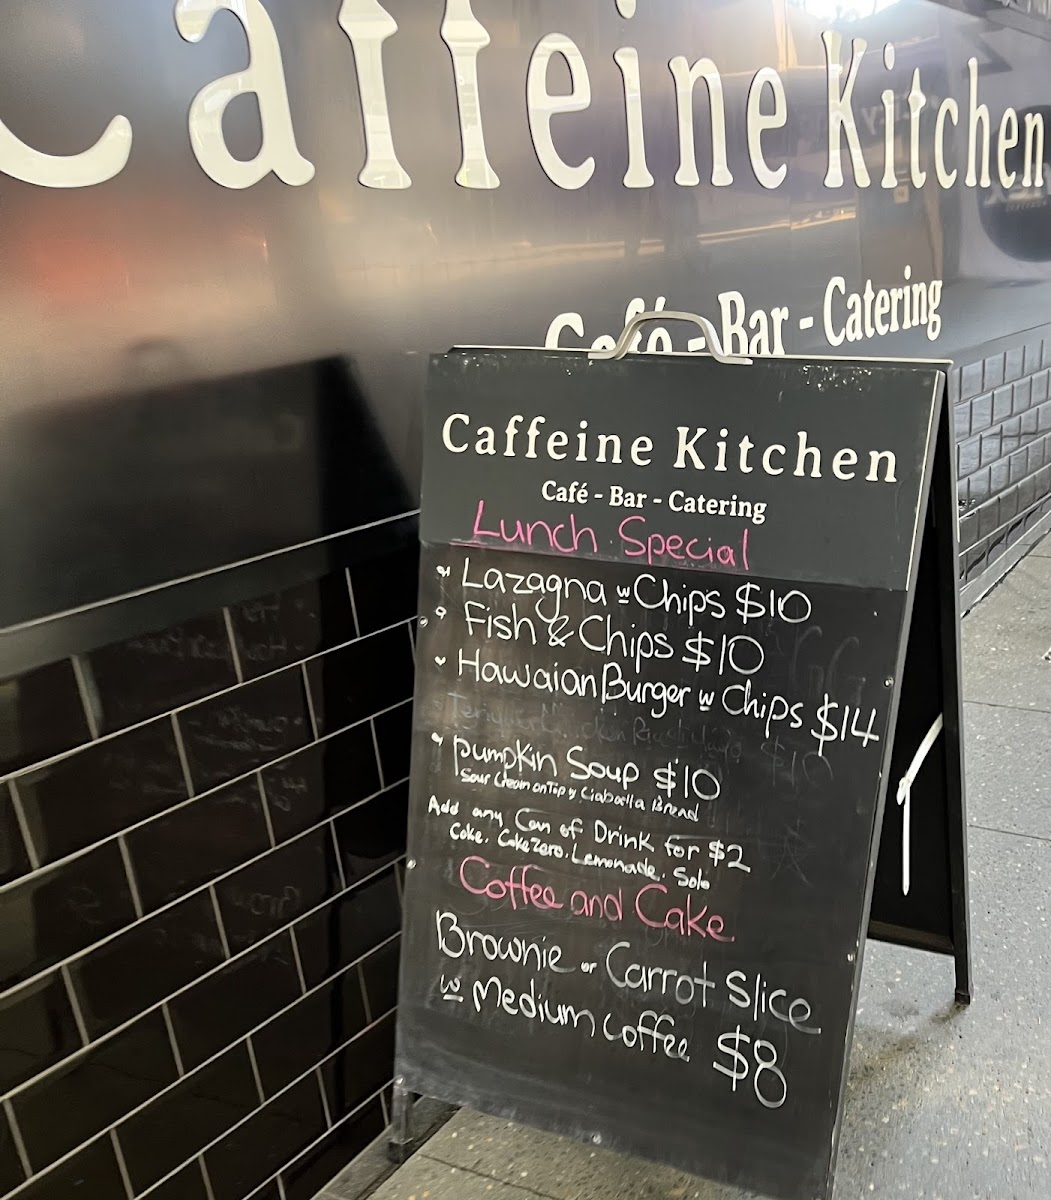 Caffeine Kitchen
Café - Bar - Catering
Caffeine Kitchen
Café - Bar - Catering
Lunch Special
Lazagna w Chips $10
Fish & Chips $10
Hawaian Burger w Chips $14
$10
pumpkin Soup $10
Sour Cream on Top w Ciabaella Bread
Add any Can of Drink for $2
Coke. Coke Zero. Lemonade. Solo
Coffee and Cake
Brownie or Carrot Slice
w Medium Coffee $8